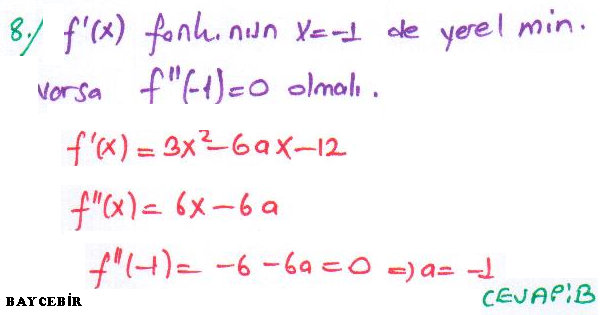 8./ f'(x) fonk.nun x=-1 de yerel min.
varsa f''(-1)=0 olmalı.
f'(x)=3x²-6ax-12
f''(x)=6x-6a
f''(-1)=-6-6a=0 ⇒ a=-1
CEVAP:B
BAYCEBİR